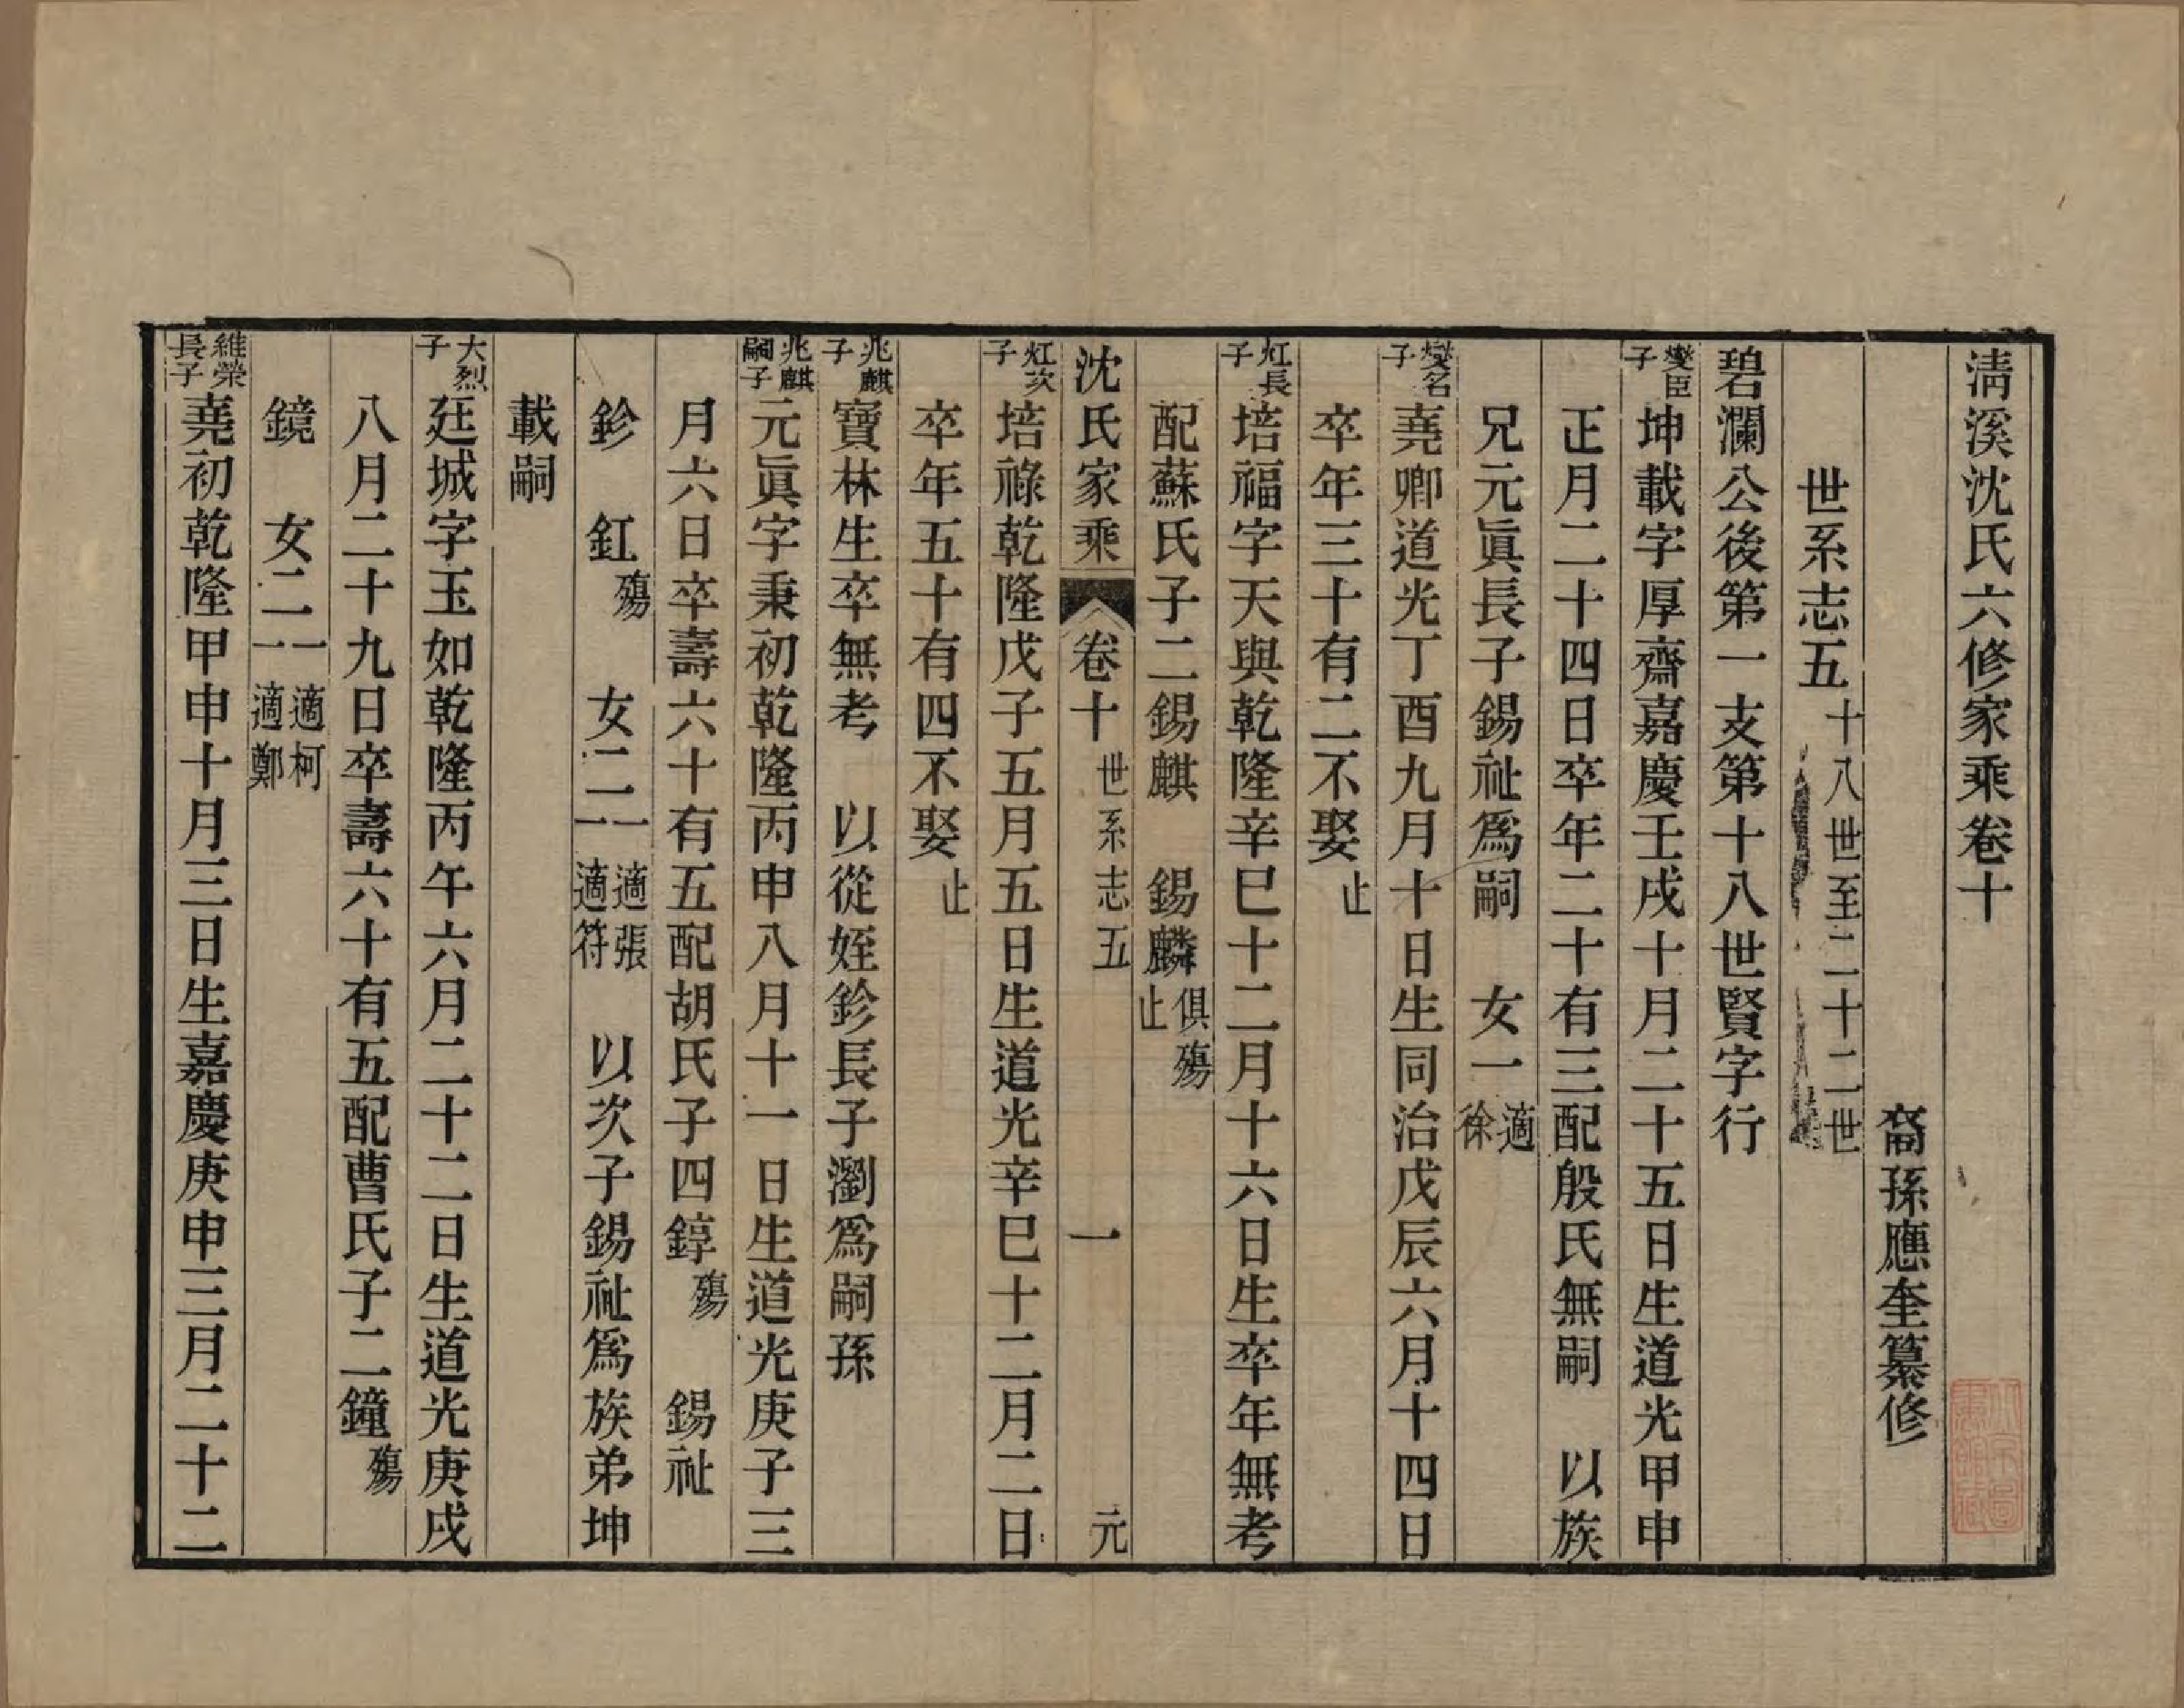 清溪沈氏六修家乘卷十
裔孫應奎纂修
世系志五十八世至二十二世
碧瀾公後第一支第十八世賢字行
燮臣子坤載字厚齋嘉慶壬戌十月二十五日生道光甲申
正月二十四日卒年二十有三配殷氏無嗣　以族
兄元眞長子錫祉爲嗣　女一適徐
燮名子堯卿道光丁酉九月十日生同治戊辰六月十四日
卒年三十有二不娶止
灴長子培福字天與乾隆辛巳十二月十六日生卒年無考
配蘇氏子二錫麒　錫麟俱殤止
沈氏家乘　卷十　世系志五　一　元
灴次子培祿乾隆戊子五月五日生道光辛巳十二月二日
卒年五十有四不娶止
兆麒子寶林生卒無考　以從姪鉁長子瀏爲嗣孫
兆麒嗣子元眞字秉初乾隆丙申八月十一日生道光庚子三
月六日卒壽六十有五配胡氏子四錞殤　錫祉
鉁　釭殤　女二一適張一適符　以次子錫祉爲族弟坤
載嗣
大烈子廷城字玉如乾隆丙午六月二十二日生道光庚戌
八月二十九日卒壽六十有五配曹氏子二鐘殤
鏡　女二一適柯一適鄭
維榮長子堯初乾隆甲申十月三日生嘉慶庚申三月二十二